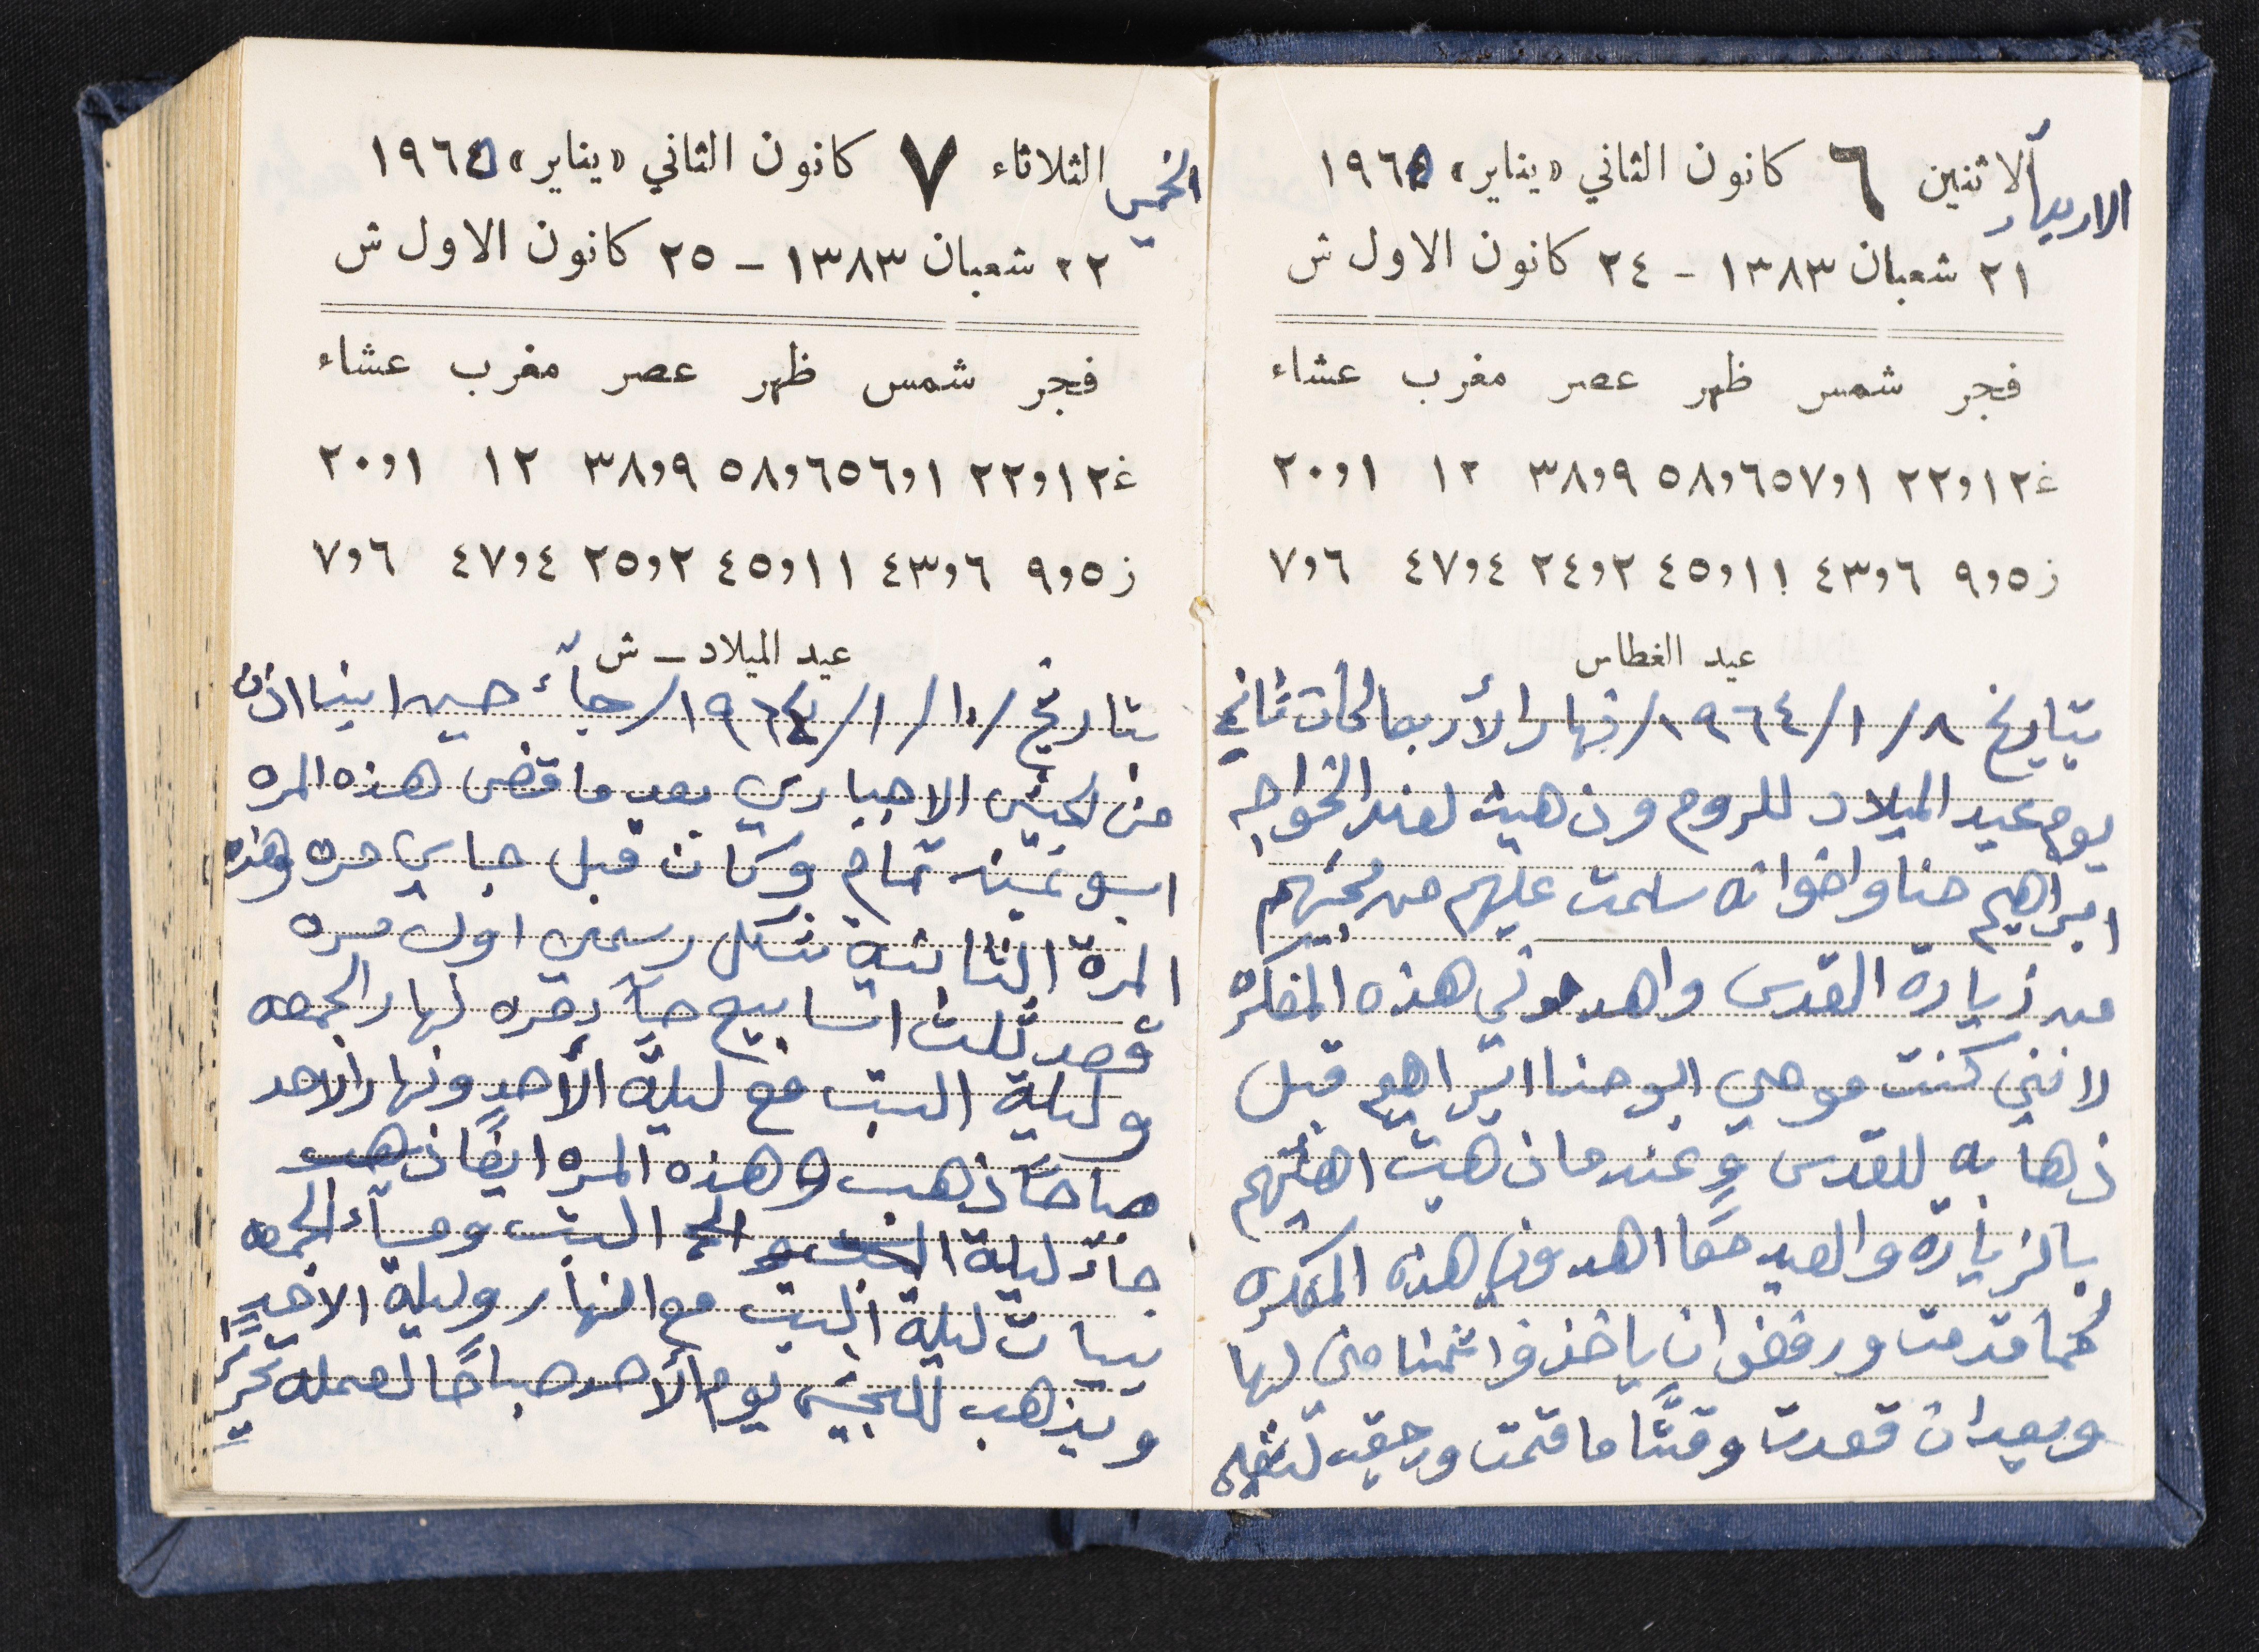 الاربعاء الاثنين ٦ كانون الثاني «يناير» ١٩٦٥
٢١ شعبان ١٣٨٣ - ٢٤ كانون الاول ش
فجر شمس ظهر عصر مغرب عشاء
غ ١٢و٢٢ ١و٥٧ ٦و٥٨ ٩و٣٨ ١٢ ١و٢٠
ز ٥و٩ ٦و٤٣ ١١و٤٥ ٢و٢٤ ٤و٤٧ ٦و٧
عيد الغطاس
بتاريخ ٨/١/١٩٦٤/ نهار الأربعا كان ثاني
يوم عيد الميلاد للروم وذهبت لعند الخواجه
ابراهيم حنا واخوانه سلمت عليهم من مجيئهم
من زيارة القدس واهدوني هذه المفكره
لانني كنت موصي ابو حنا ابراهيم قبل
ذهابه للقدس وعندما ذهبت اهنئهم
بالزيارة والعيد معًا اهدوني هذه المفكره
كما قدمت ورفضوا ان ياخذوا ثمنا مني لها
وبعد ان قعدت وقتًا ما قمت ورجعت
الخميس الثلاثاء ٧ كانون الثاني «يناير» ١٩٦٥
٢٢ شعبان ١٣٨٣ - ٢٥ كانون الاول ش
فجر شمس ظهر عصر مغرب عشاء
غ ١٢و٢٢ ١و٥٦ ٦و٥٨ ٩و٣٨ ١٢ ١و٢٠
ز ٥و٩ ٦و٤٣ ١١و٤٥ ٢و٢٥ ٤و٤٧ ٦و٧
عيد الميلاد - ش
بتاريخ /١٠/١/١٩٦٤/ جاء حسن ابننا اذن
من الجيش الاجباري بعد ما قضى هذه المره
اسبوعين تمام وكان قبل جاي مره وهذه
المرة الثانية بشكل رسمي اول مره
قعد ثلاث اسابيع جاء نهار الجمعه
وليلة السبت مع ليلة الأحد ونهار الاحد
صباحًا ذهب وهذه المره ايضًا ذهب
جاء ليلة السبت ومساء الجمعه
يبات ليلة السبت مع النهار وليلة الاحد
ويذهب للجيش يوم الأحد صباحًا لعمله